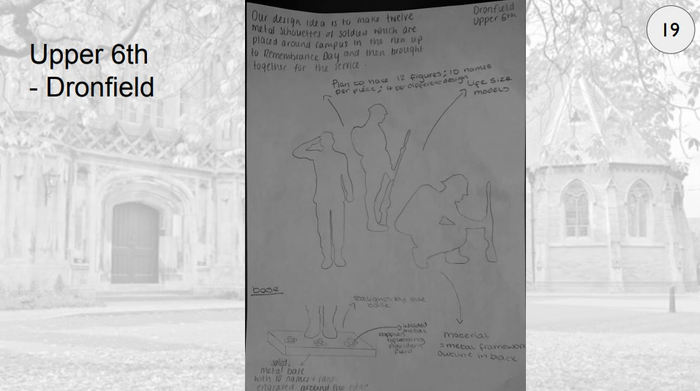 Upper 6th
- Dronfield
19
Our design idea is to make twelve
metal silhouettes of soldiers which are
placed around campus in the run up
to Remembrance Day and then brought
together for the service
Dronfield
Upper 6th
Plan to have 12 figures; 10 names
per piece; 4 per different design
Life size
models
base
base
metal base
with 10 names + ranks
engraved around the edge
material
metal framework
outline in black